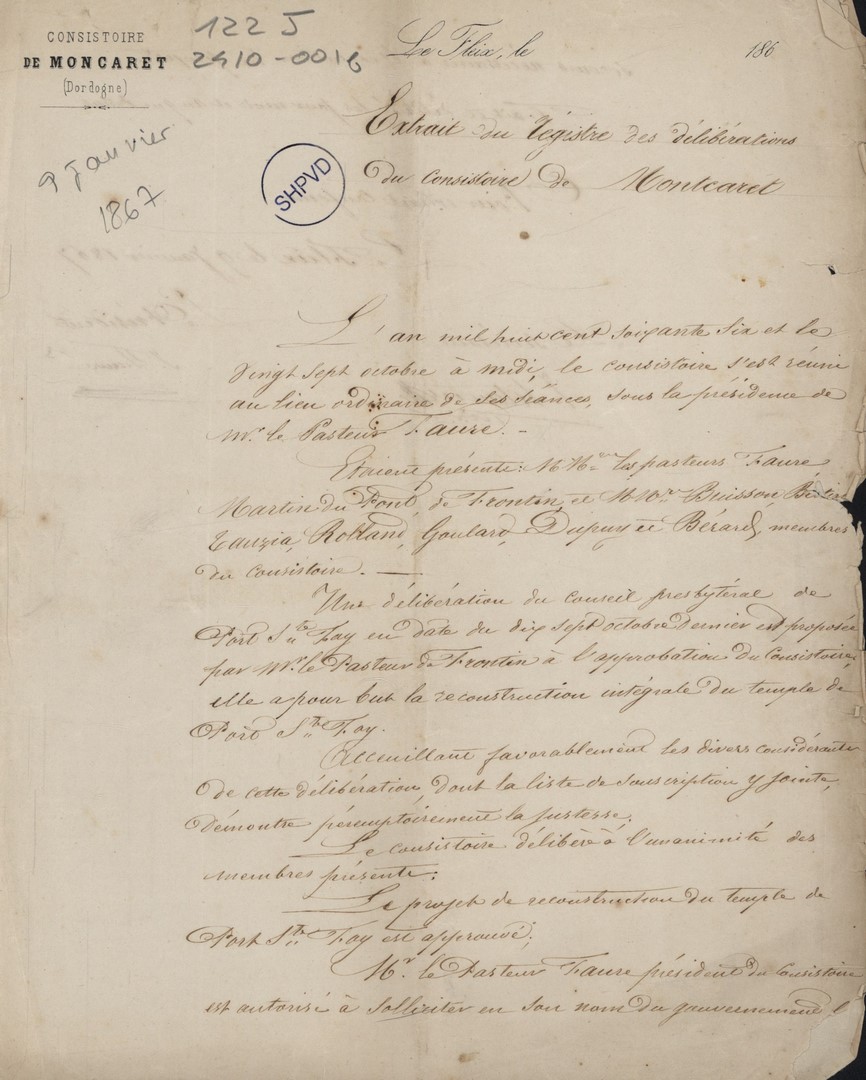 CONSISTOIRE
DE MONCARET
(Dordogne)
122 J
2410-0016
Le Fleix, le 186
9 Janvier
1867
SHPVD
Extrait du régistre des délibérations
du consistoire de Montcaret
L'an mil huit cent soixante six et le
vingt sept octobre à midi, le consistoire s'est réuni
au lieu ordinaire de ses séances, sous la présidence de
Mr. le Pasteur Faure. -
Etaient présents: MM. les pasteurs Faure
Martin du Pont, de Frontin, et MM. Buisson,
Tauzia, Rolland, Goulard, Dupuy et Bérard, membres
du consistoire. —
Une délibération du Conseil presbytéral de
Port Ste Foy en date du dix sept octobre dernier est proposée
par Mr. le Pasteur de Frontin à l'approbation du Consistoire,
elle a pour but la reconstruction intégrale du temple de
Port Ste Foy.
Accueillant favorablement les divers considérants
de cette délibération, dont la liste de souscription y jointe,
démontre péremptoirement la justesse.
Le consistoire délibère à l'unanimité des
membres présents:
Le projet de reconstruction du temple de
Port Ste Foy est approuvé;
Mr. le Pasteur Faure président du Consistoire
est autorisé à solliciter en son nom du gouvernement